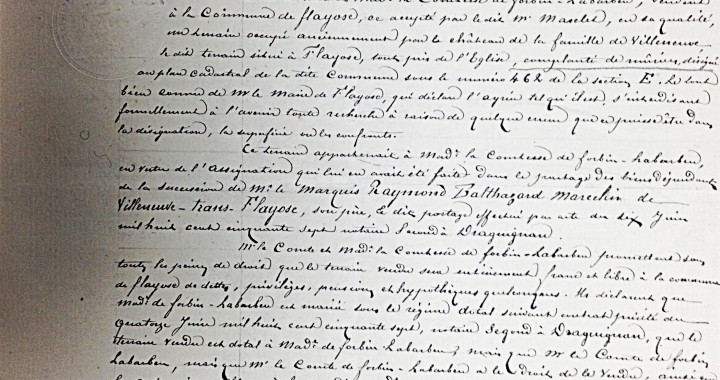 à la Commune de flayose, ce accepté par le dit Mr Maselet, en sa qualité,
un terrain occupé anciennement par le château de la famille de Villeneuve
le dit terrain situé à Flayose, tout près de l'Eglise, complanté de mûriers, désigné
au plan cadastral de la dite Commune sous le numéro 462 de la section E. Le tout
bien connu de Mr le Maire de Flayose, qui déclare l'agréer tel qu'il est, s'interdisant
formellement à l'avenir toute recherche à raison de quelque erreur que ce puisse être dans
la désignation, la superficie ou les confronts.
Ce terrain appartenait à Made la Comtesse de forbin-Labarben,
en vertu de l'assignation qui lui en avait été faite dans le partage des biens dépendants
de la succession de Mr le Marquis Raymond Balthazard Marcelin de
Villeneuve-trans-Flayose, son père, le dit partage effectué par acte du dix Juin
mil huit cent cinquante sept notaire Segond à Draguignan.
Mr le Comte et Made la Comtesse de forbin-Labarben promettent sous
toutes les peines de droit que le terrain vendu sera entièrement franc et libre à la commune
de flayose de dettes, privilèges, pensions et hypothèques quelconques. Ils déclarent que
Made de forbin-Labarben est mariée sous le régime dotal suivant contrat précité du
quatorze Juin mil huit cent cinquante sept, notaire Segond à Draguignan, que le
terrain vendu est dotal à Made de forbin-Labarben, mais que Mr le Comte de forbin
Labarben, mais que Mr le Comte de forbin-Labarben a le droit de le vendre, ainsi